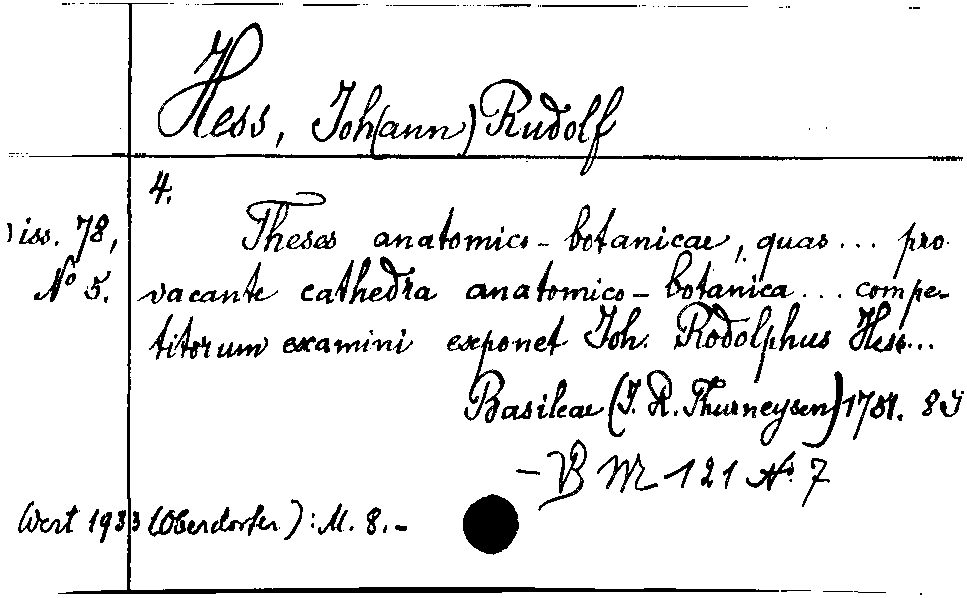 Hess, Joh(ann) Rudolf
4.
Diss. 78, Theses anatomico-botanicae, quas... pro
No 5. vacante cathedra anatomico-botanica... compe-
titorum examini exponet Joh. Rodolphus Hess...
Basileae (J. R. Thurneysen) 1751. 8
- B M 121 No. 7
Wert 1933 (Oberdorfer): M. 8.-